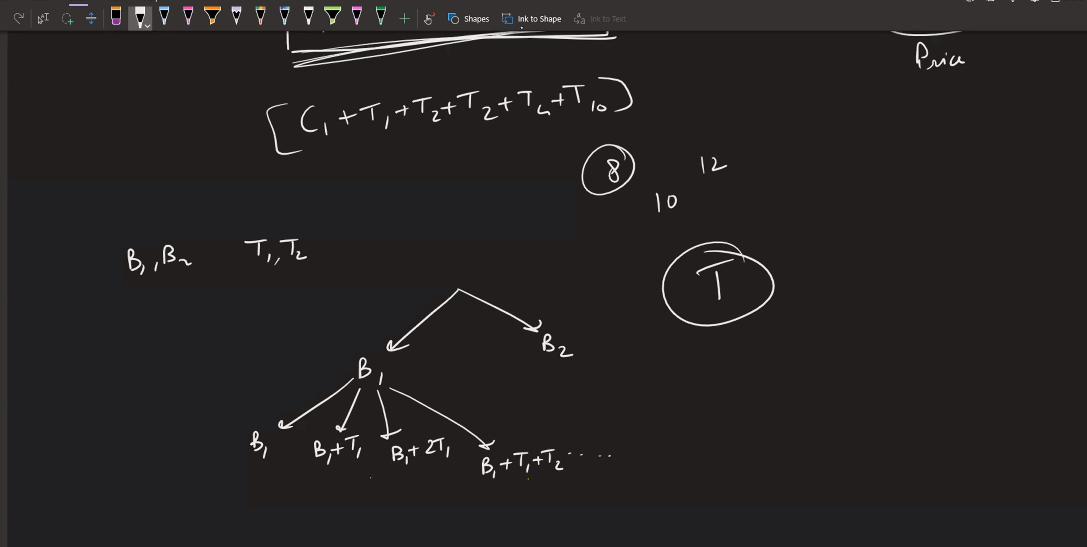 Shapes Ink to Shape Ink to Text
Price
[C1 + T1 + T2 + T2 + T4 + T10]
8 12
10
B1, B2 T1, T2
T
B2
B1
B1 B1+T1 B1+2T1 B1+T1+T2 ....